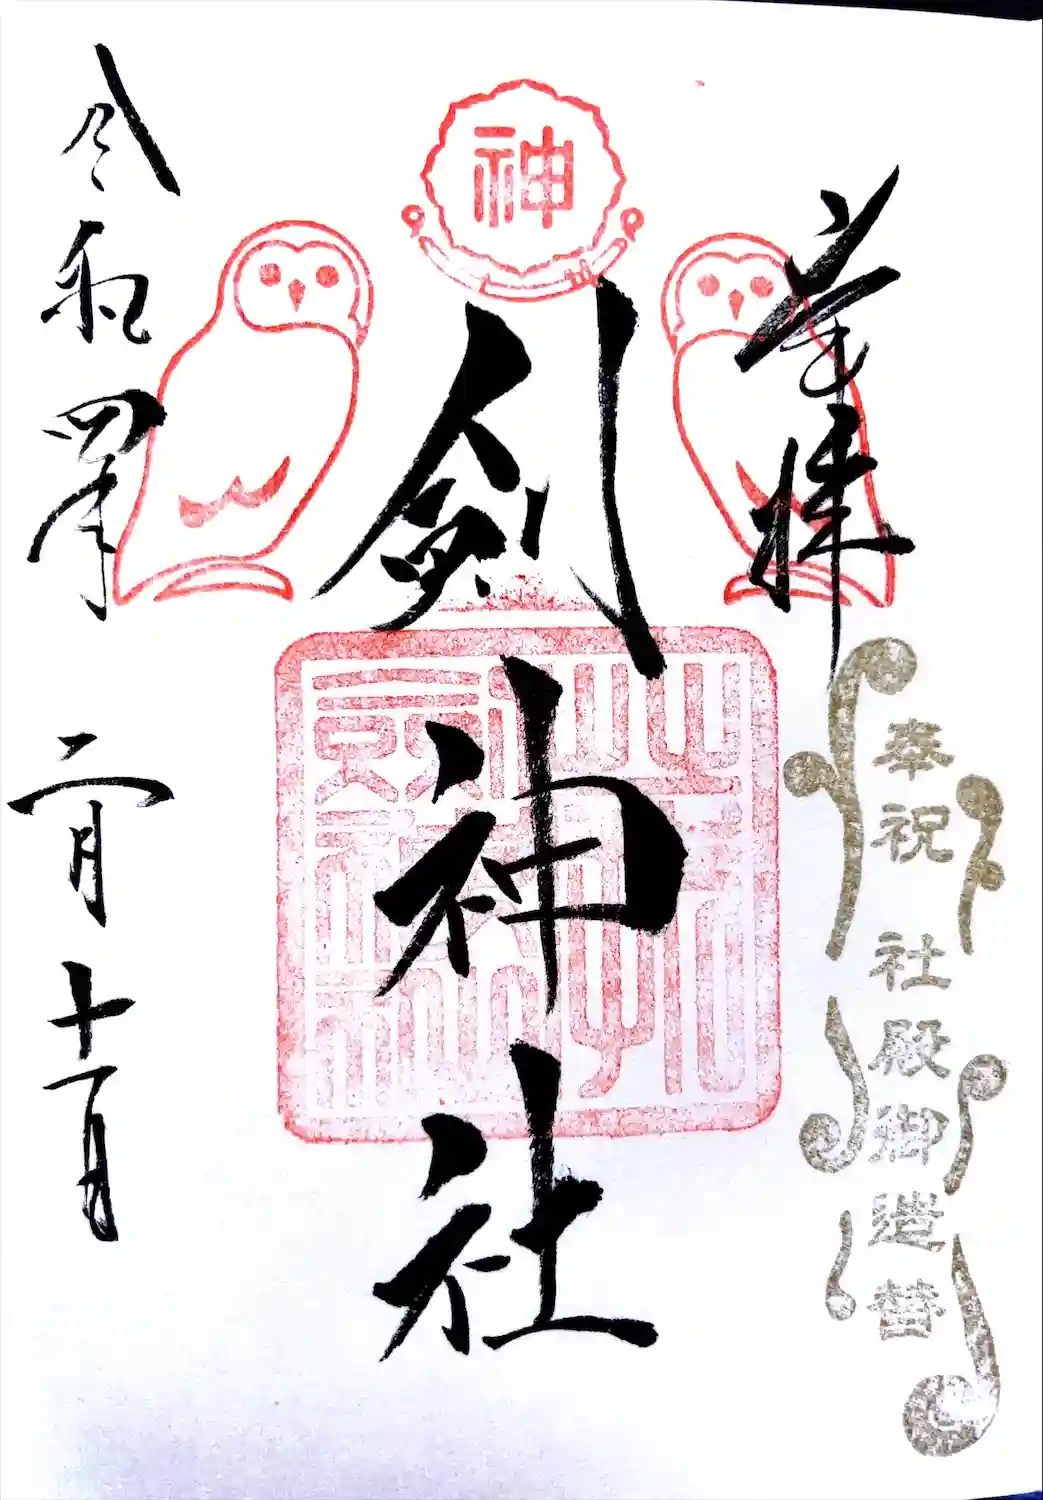 奉拝
奉祝 社殿御造替
神
剣神社
令和四年 二月 十一日